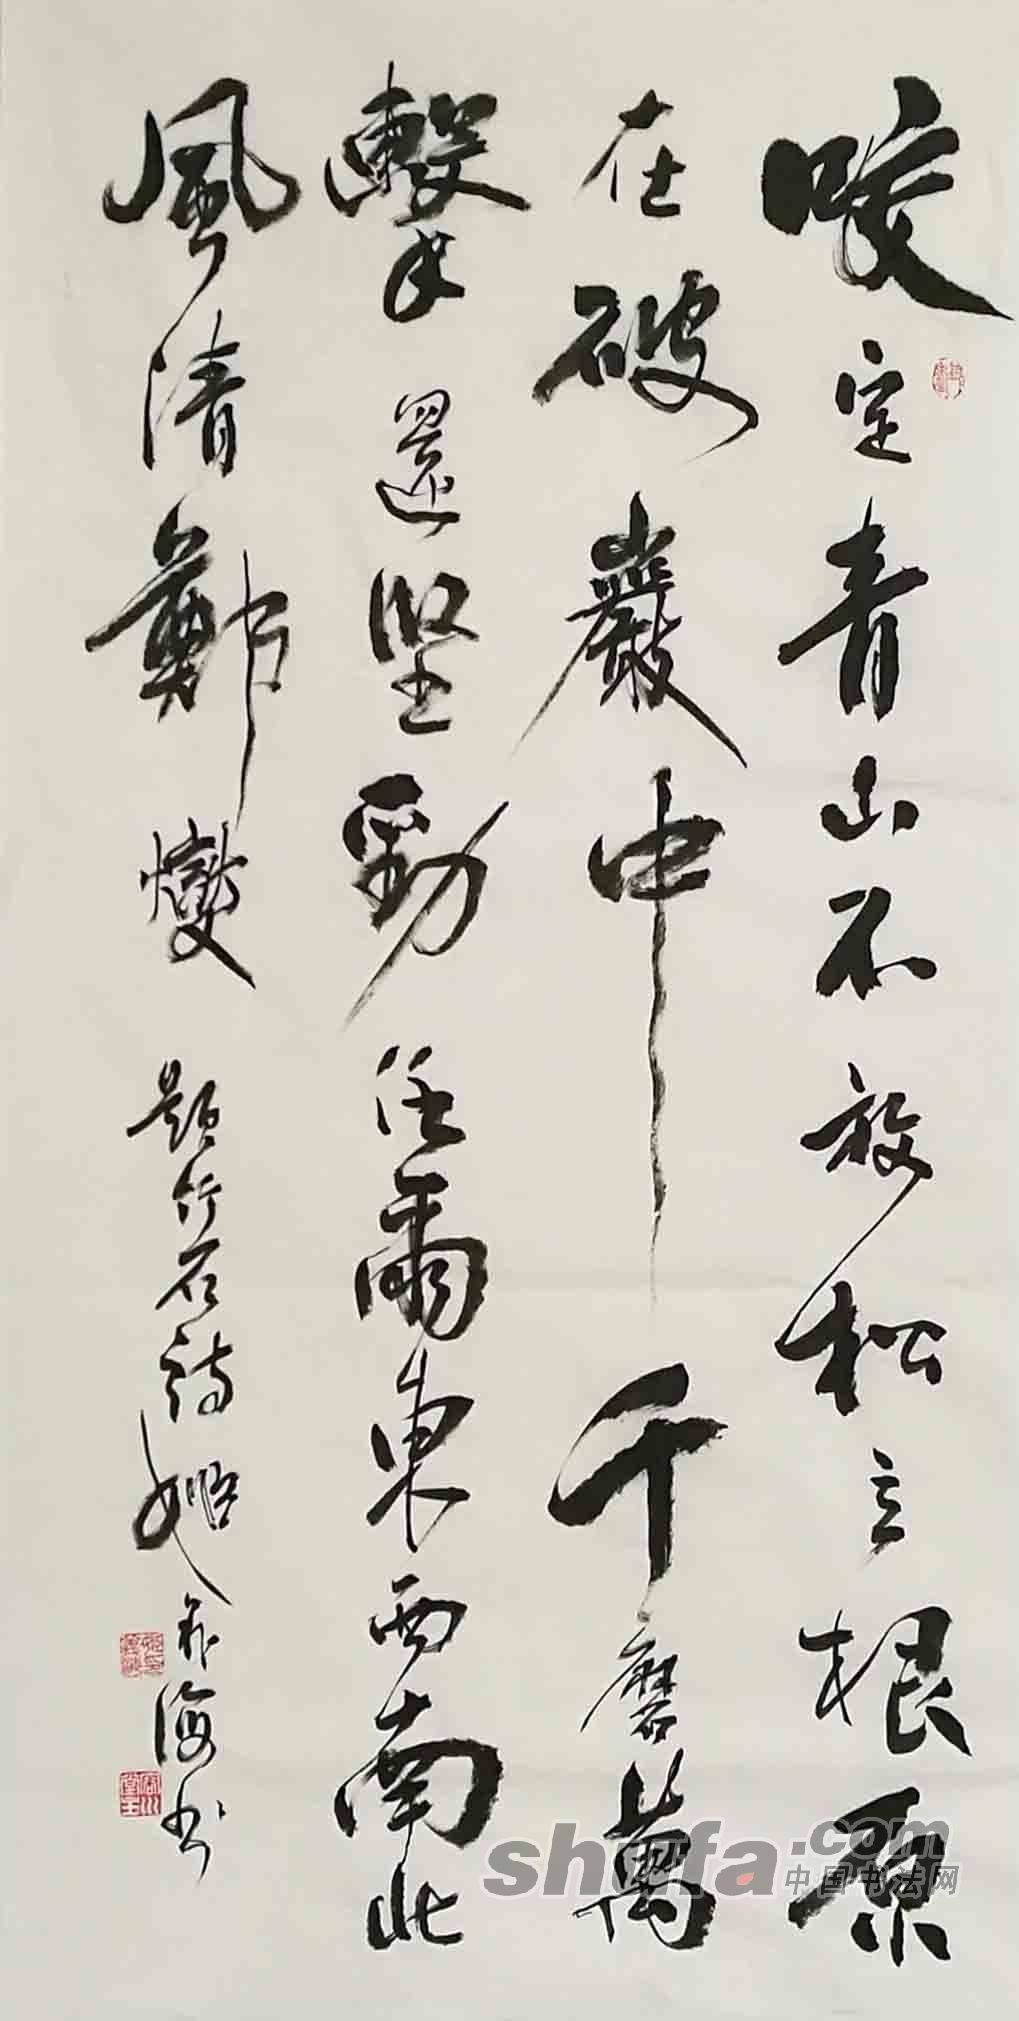 咬定青山不放松立根原
在破巖中千磨萬
擊還坚勁任爾東西南北
風清鄭燮題竹石詩姬
海书
shufa.com
中国书法网